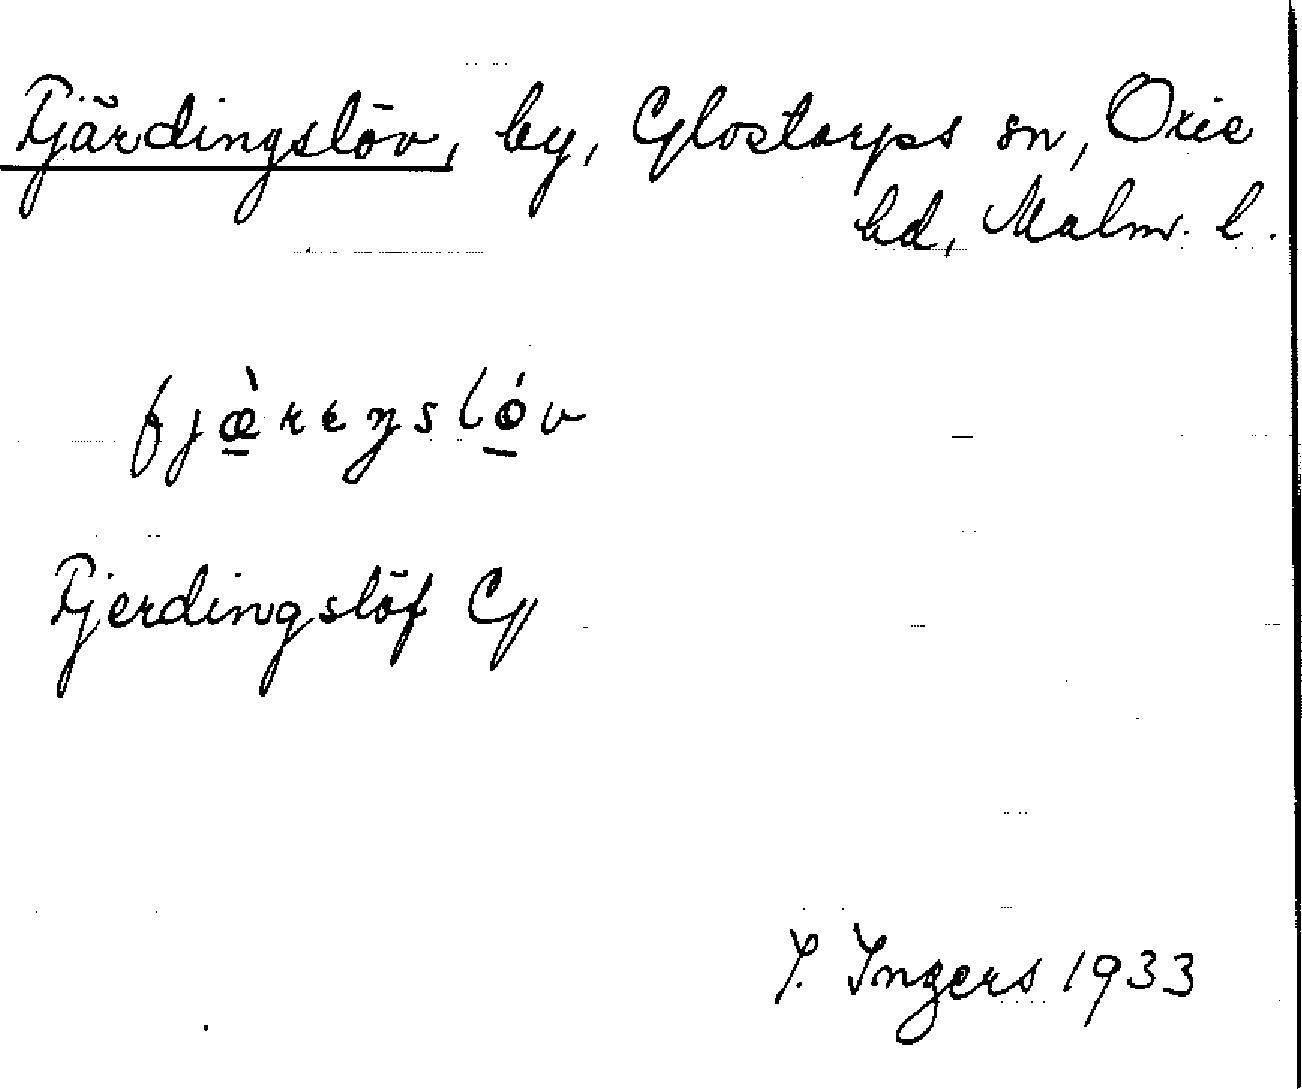 Fjärdingslöv, by, Glostorps sn, Oxie
hd, Malm. l.
fjæ̀reŋslóv
Fjerdingslöf Cy
I. Ingers 1933